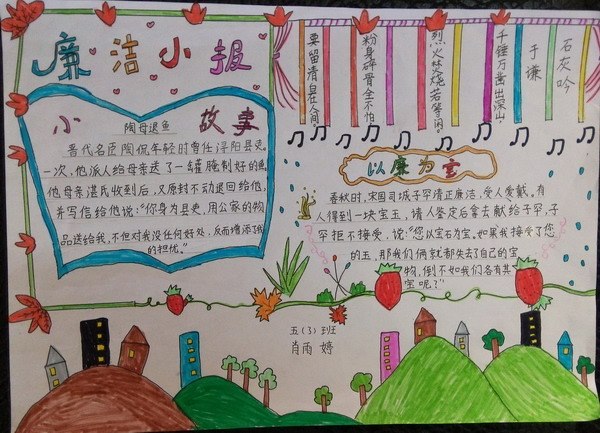 廉洁小报
小故事
陶母退鱼
晋代名臣陶侃年轻时曾任浔阳县吏。
一次,他派人给母亲送了一罐腌制好的鱼
他母亲湛氏收到后,又原封不动退回给他,
并写信给他说:"你身为县吏,用公家的物
品送给我,不但对我没任何好处,反而增添了我
的担忧。"
石灰吟
于谦
千锤万凿出深山,
烈火焚烧若等闲。
粉身碎骨全不怕
要留清白在人间
以廉为宝
春秋时,宋国司城子罕清正廉洁,受人爱戴。有
人得到一块宝玉,请人鉴定后拿去献给子罕,子
罕拒不接受,说:"您以宝石为宝。如果我接受了您
的玉,那我们俩就都失去了自己的宝
物,倒不如我们各有其
宝呢?"
五(3)班
肖雨婷